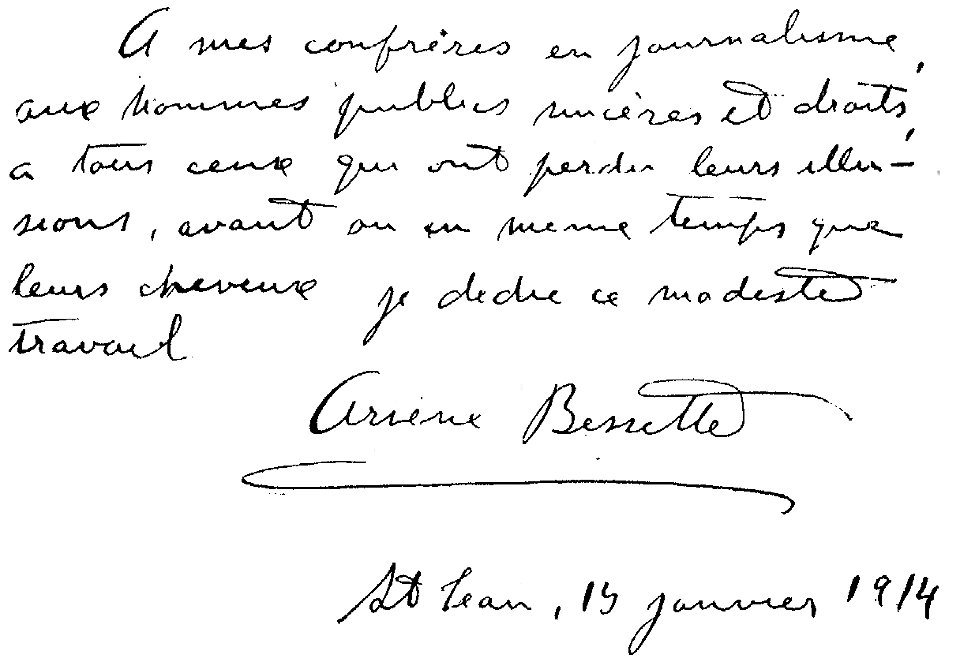 A mes confrères en journalisme,
aux hommes publics sincères et droits,
a tous ceux qui ont perdu leurs illu-
sions, avant ou en meme temps que
leurs cheveux je dedie ce modeste
travail
Arsène Bessette
St Jean, 15 janvier 1914